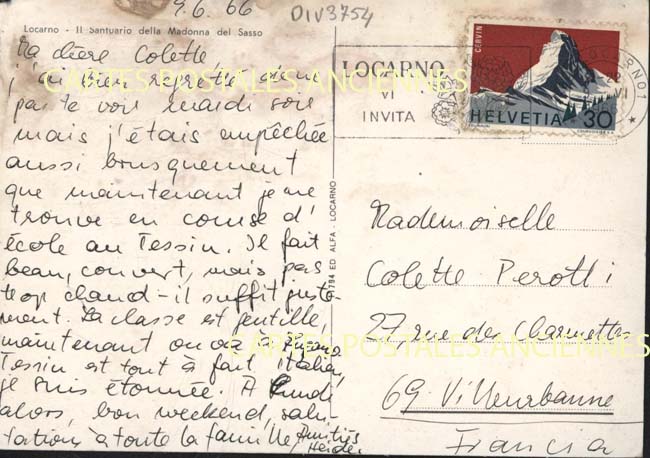 9.6.66
DIV3754
Locarno - Il Santuario della Madonna del Sasso
Ma chère Colette,
j'ai bien regretté de ne
pas te voir mardi soir
mais j'étais empêchée
aussi brusquement
que maintenant je me
trouve en course d'
école au Tessin. Il fait
beau, couvert, mais pas
trop chaud - il suffit juste-
ment. La classe est gentille
maintenant on va à
Tessin est tout à fait italien,
je suis étonnée. A lundi
alors, bon weekend, salu-
tations à toute la famille
Amitiés
Heidi
794 ED ALFA - LOCARNO
LOCARNO
VI
INVITA
CERVIN
HELVETIA 30
Mademoiselle
Colette Perotti
27, rue des Charmettes
69 Villeurbanne
Francia
CARTES POSTALES ANCIENNES
CARTES POSTALES ANCIENNES